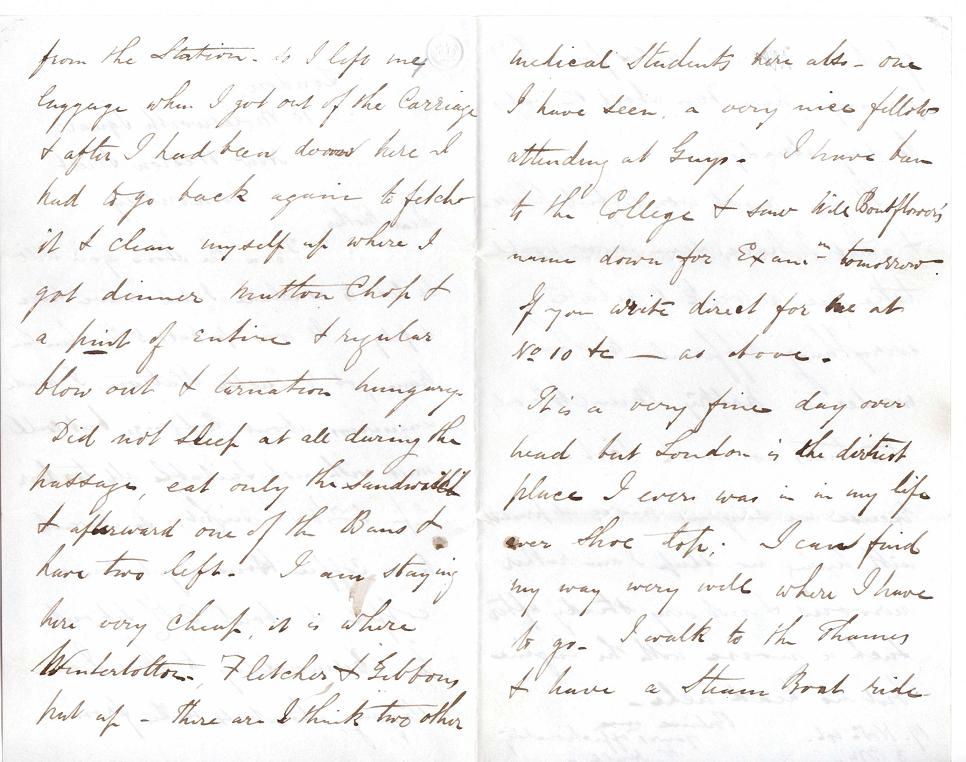 from the Station - so I left my
luggage when I got out of the Carriage
& after I had been down here I
had to go back again to fetch
it & clean myself up where I
got dinner Mutton Chop &
a pint of Entire & regular
blow out & turnation hungary.
Did not sleep at all during the
passage, eat only the sandwich
& afterward one of the Buns &
have two left - I am staying
here very cheap, it is where
Winterbotton, Fletcher, & Gibbons
put up - there are I think two other
medical Students here also - one
I have seen, a very nice fellow
attending at Guys - I have ban
to the College & saw Will Boutflower's
name down for Exam:n tomorrow.
If you write direct for me at
No 10 &c — as above.
It is a very fine day over
head but London is the dirtiest
place I ever was in in my life
over Shoe top; I can find
my way very well where I have
to go - I walk to the Thames
& have a Steam Boat ride